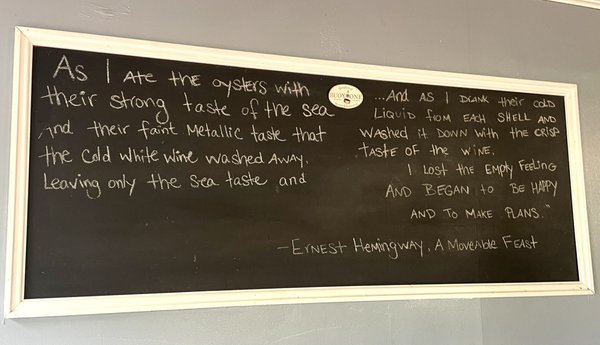 As I Ate the oysters with
their strong taste of the sea
and their faint Metallic taste that
the cold white wine washed away,
Leaving only the sea taste and
BUOY ONE
...And as I drank their cold
liquid from each shell and
washed it down with the crisp
taste of the wine,
I lost the empty feeling
and began to be happy
and to make plans."
-Ernest Hemingway, A Moveable Feast